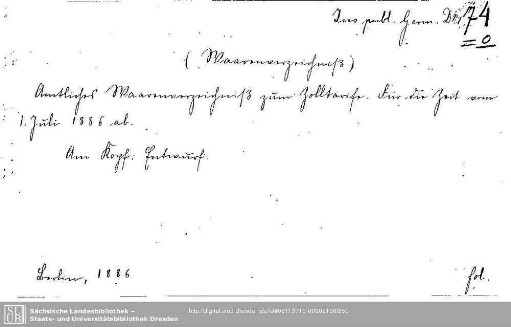 Jus publ. Germ. 74
= 0
(Waarenverzeichniß)
Amtliches Waarenverzeichniß zum Zolltarife. Für die Zeit vom
1. Juli 1886 ab.
Am Kopf: Entwurf.
Berlin, 1886
fol.
Sächsische Landesbibliothek –
Staats- und Universitätsbibliothek Dresden